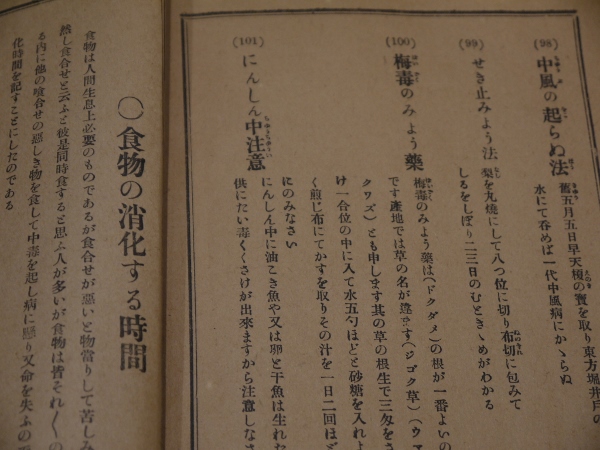 (98)
中風の起らぬ法
舊五月五日早天榎の實を取り東方堀井戸の
水にて呑めば一代中風病にかゝらぬ
(99)
せき止みよう法
梨を丸燒にして八つ位に切り布切に包みて
しるをしぼり二三日のむときゝめがわかる
(100)
梅毒のみよう藥
梅毒のみよう藥は(ドクダメ)の根が一番よいの
です產地では草の名が違ます(ジゴク草)(ウマ
クワズ)とも申します其の草の根生で三匁をさ
け一合位の中に入て水五勺ほどと砂糖を入れよ
く煎じ布にてかすを取りその汁を一日二回ほど
にのみなさい
(101)
にんしん中注意
にんしん中に油こき魚や又は卵と干魚は生れた
供にたい毒くくさけが出來ますから注意しなさ
〇食物の消化する時間
食物は人間生息上必要のものであるが食合せが惡いと物當りして苦しみ
然し食合せと云ふと彼是同時食すると思ふ人が多いが食物は皆それ〴〵の
る内に他の喰合せの惡しき物を食して中毒を起し病に罹り又命を失ふの
化時間を記すことにしたのである